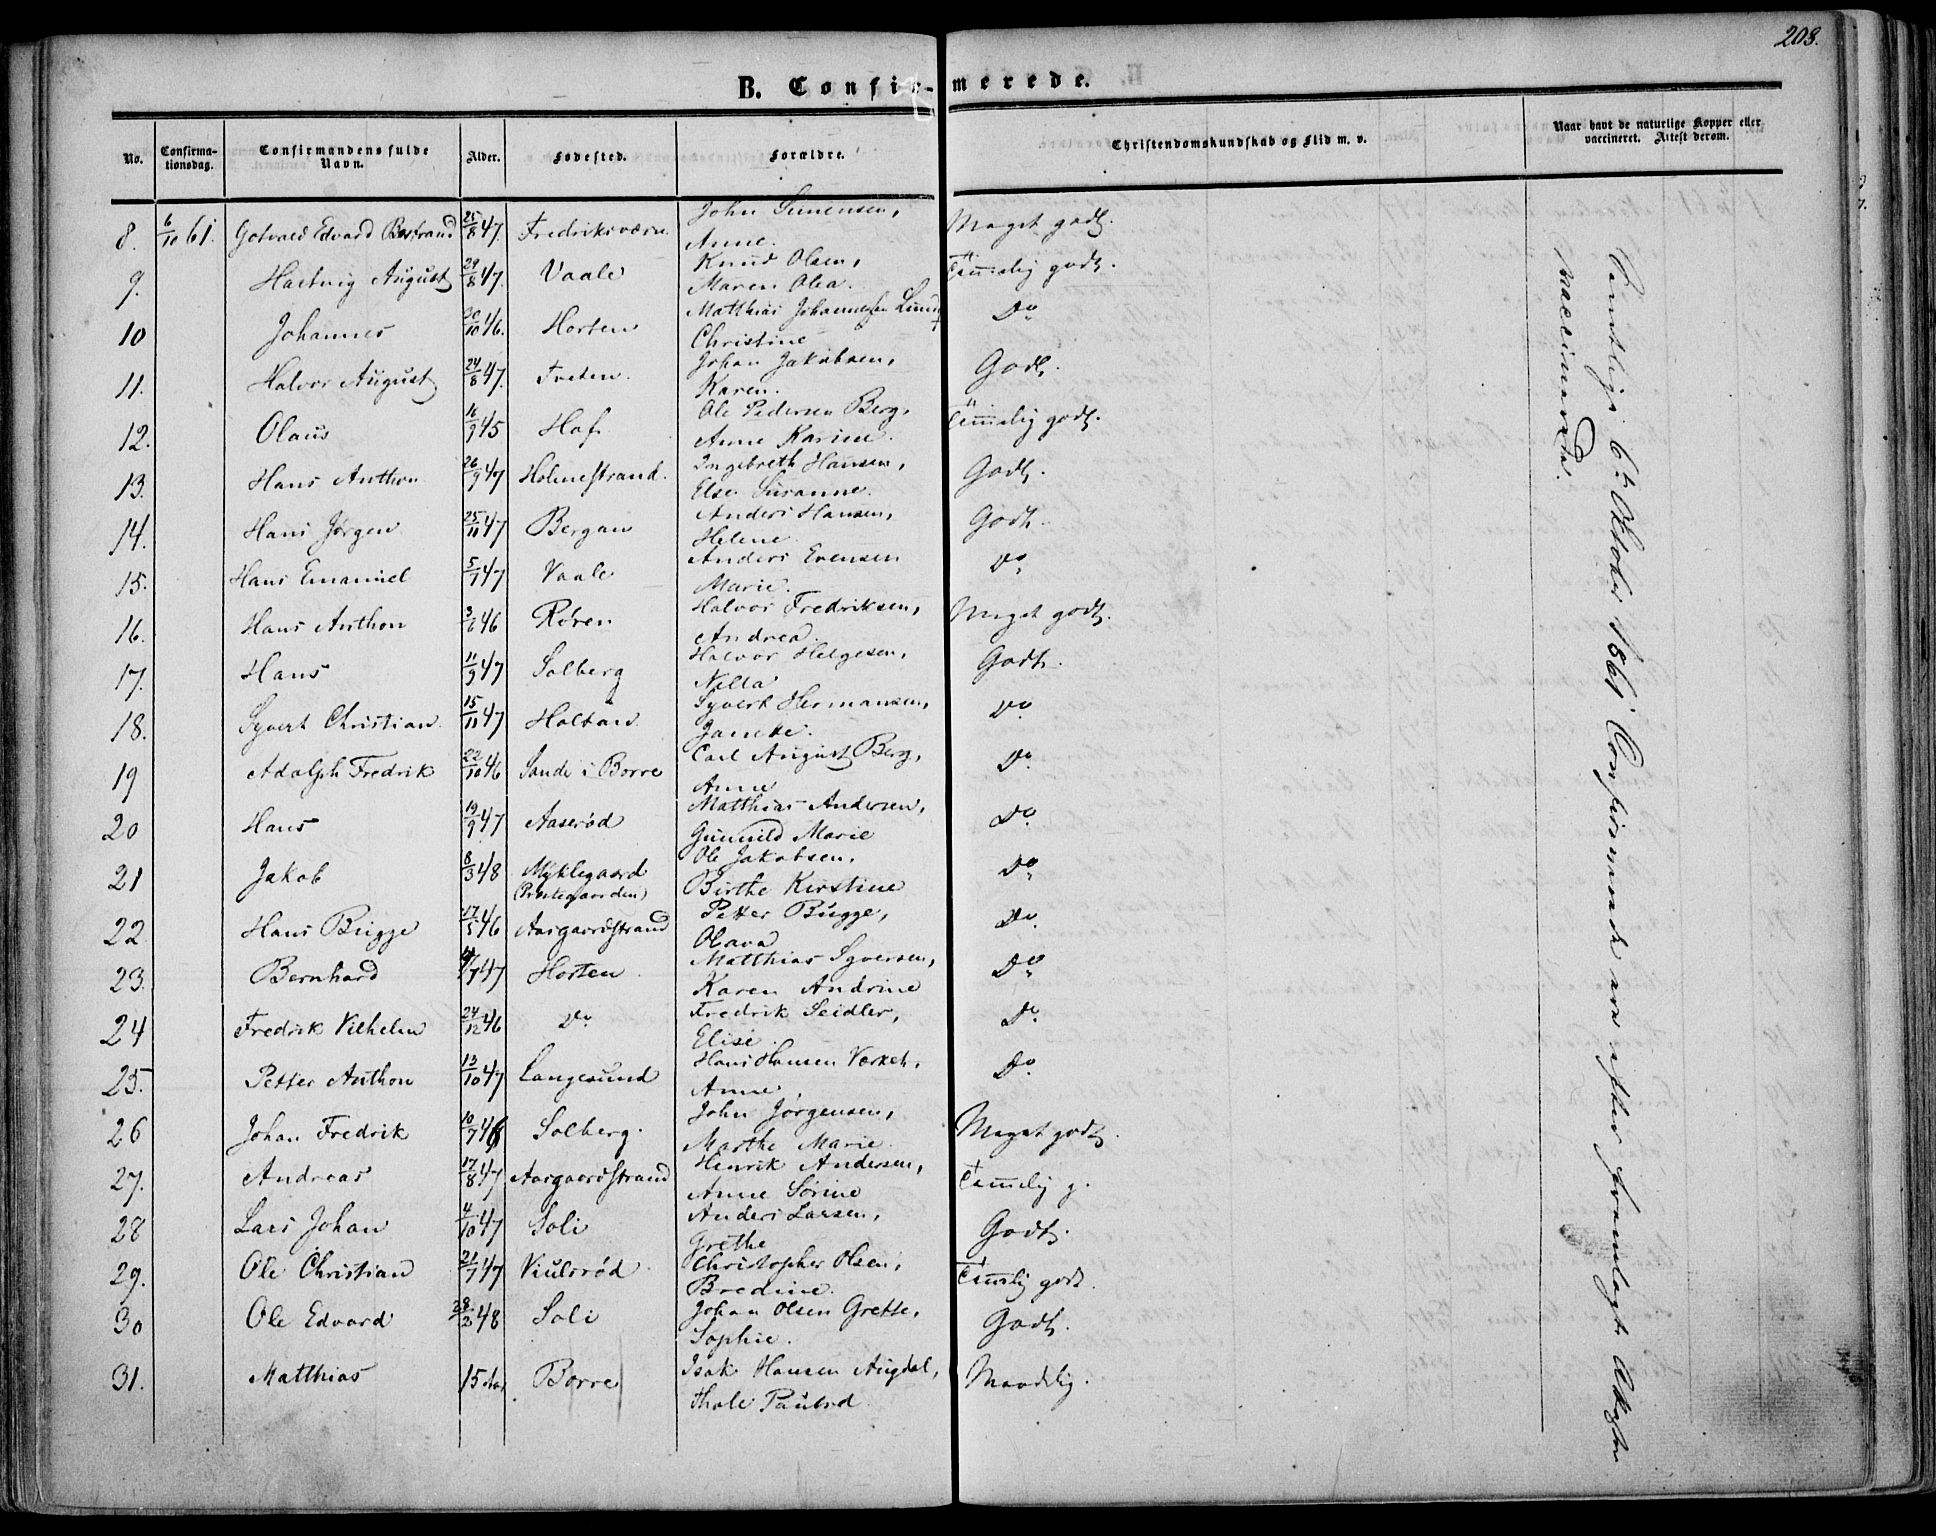 208.
B. Confir- merede.
No. Confirma-tionsdag. Confirmandens fulde Navn. Alder. Fødested. Forældre. Christendomskundskab og Flid m. v. Naar havt de naturlige Kopper eller vaccineret. Attest derom.
8. 6/10 61. Gotvald Edvard Bertrand 25/8 47. Fredriksværn John Simensen, Anne. Meget godt.
9. Hartvig August 29/8 47. Vaale Knud Olsen, Maren Olea. Temmelig godt.
10 Johannes 20/10 46. Horten Matthias Johannesen Lund, Christine Do
11. Halvor August 24/8 47. Tveten. Johan Jakobsen, Karen. Godt.
12. Olaus 16/9 45 Hof. Ole Pedersen Berg, Anne Karine. Temmelig godt.
13. Hans Anthon 26/9 47 Holmestrand. Ingebreth Hansen, Else Susanne. Godt.
14. Hans Jørgen 25/11 47 Bergan Anders Hansen, Helene. Godt.
15. Hans Emanuel 5/7 47 Vaale Anders Evensen Marie. Do
16. Hans Anthon 3/6 46 Røren Halvor Fredriksen, Andrea. Meget godt.
17. Hans 11/9 47 Solberg Halvor Helgesen, Nilla Godt.
18. Syvert Christian. 15/11 47 Holtan Syvert Hermansen, Janeke. Do
19 Adolph Fredrik 22/10 46 Sande i Borre Carl August Berg, Anne Do
20 Hans 19/9 47 Aaserød Matthias Andersen, Gunnild Marie Do
21 Jakob 8/3 48 Myklegaard (Prestegaarden) Ole Jakobsen, Birthe Kirstine Do
22 Hans Bugge 17/5 46 Aasgaardstrand Petter Bugge, Olava Do
23. Bernhard 4/7 47 Horten Matthias Syversen, Karen Andrine Do
24 Fredrik Vilhelm 24/12 46 Do Fredrik Seidler, Elise. Do
25. Petter Anthon 13/10 47 Langesund Hans Hansen Verket, Anne, Do
26 Johan Fredrik 10/7 46 Solberg. John Jørgensen, Marthe Marie. Meget godt.
27. Andreas 17/8 47 Aasgaardstrand Henrik Andersen, Anne Sørine Temmelig g.
28 Lars Johan 4/10 47 Soli Anders Larsen, Grethe Godt.
29. Ole Christian 21/7 47 Viulsrød Christopher Olsen, Bredine. Temmelig godt.
30 Ole Edvard 28/2 48 Soli Johan Olsen Grette, Sophie. Godt.
31. Matthias 15 Aar Borre Isak Hansen Augdal, Thale Paulsd Maadelig.
Samtlige 6te Oktober 1861 Confirmerede ere efter fremlagte Attester
vaccinerede.